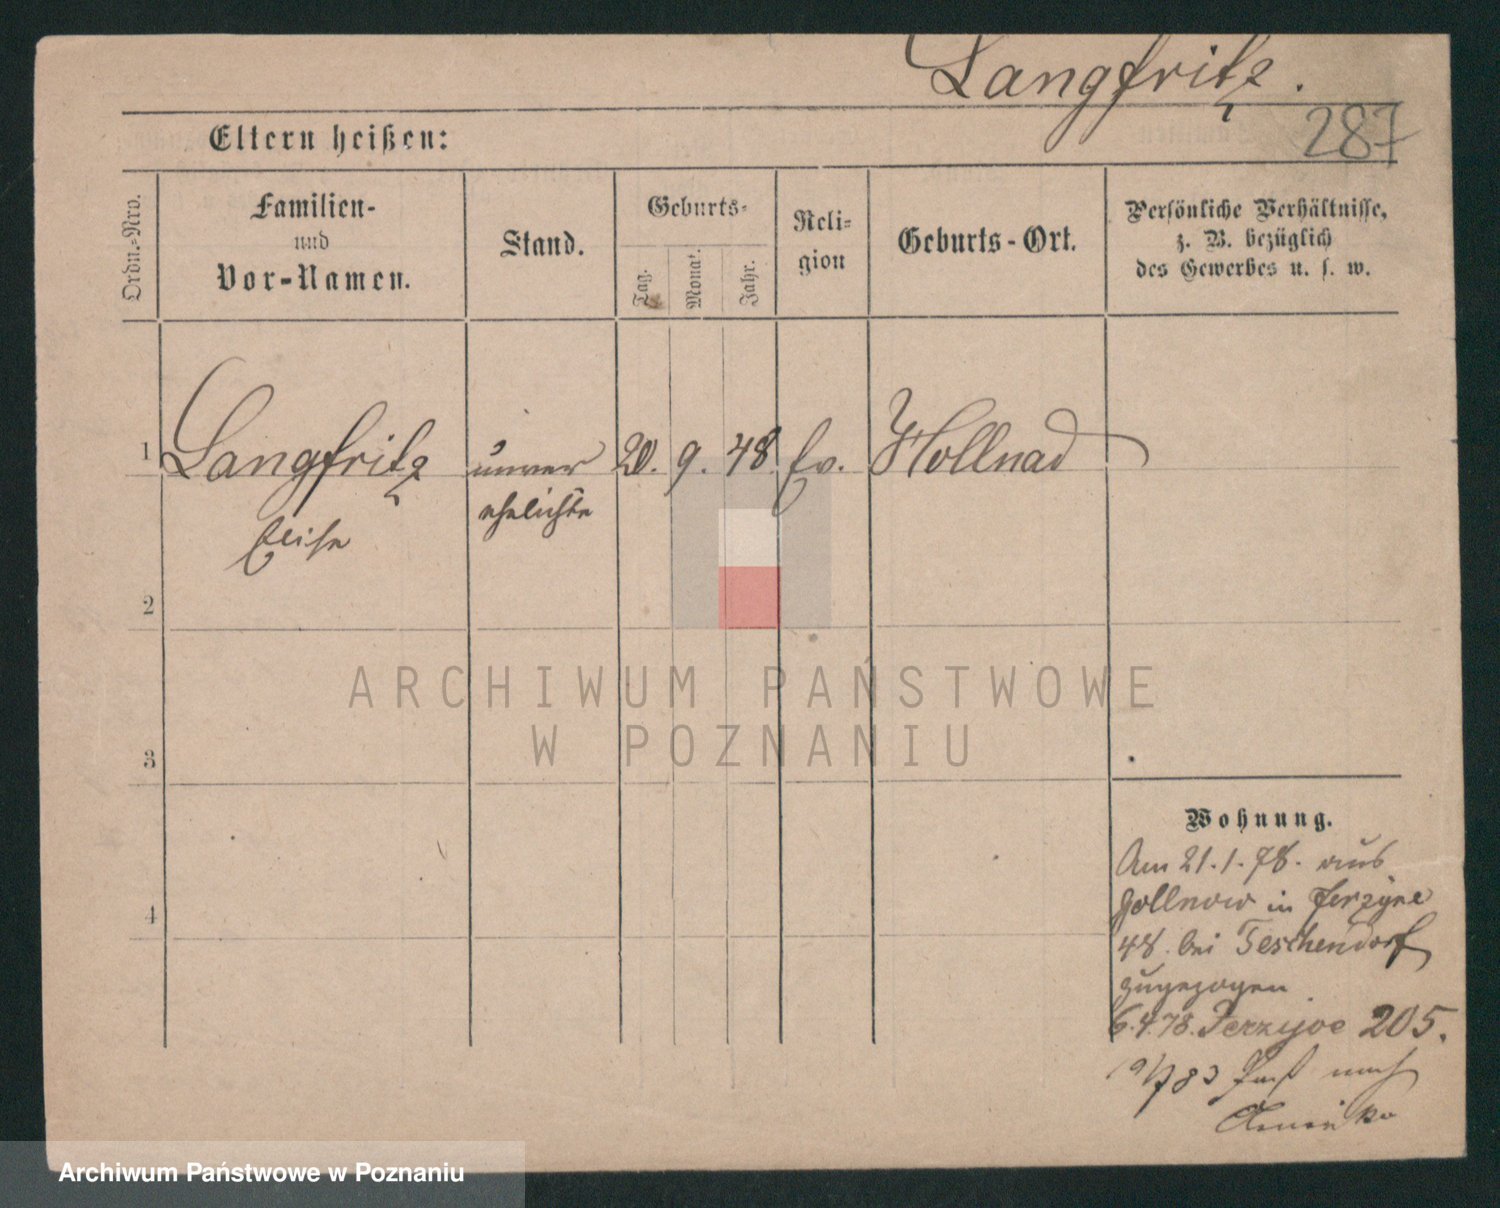 Langfritz.
287
Eltern heißen:
Ordn.-Nro.
Familien-
und
Vor-Namen.
Stand.
Geburts-
Tag.
Monat.
Jahr.
Reli-
gion
Geburts-Ort.
Persönliche Verhältnisse,
z. B. bezüglich
des Gewerbes u. s. w.
1 Langfritz unver 20. 9. 48 Ev. Hollnad
ehelichte
2
3
4
ARCHIWUM PAŃSTWOWE
W POZNANIU
Wohnung.
Am 21.1.78. aus
Gollnow in Jerzyce
48. bei Teschendorf
zugezogen
6.4.78. Jerzyce 205.
83 Paß nach
Amerika
Archiwum Państwowe w Poznaniu